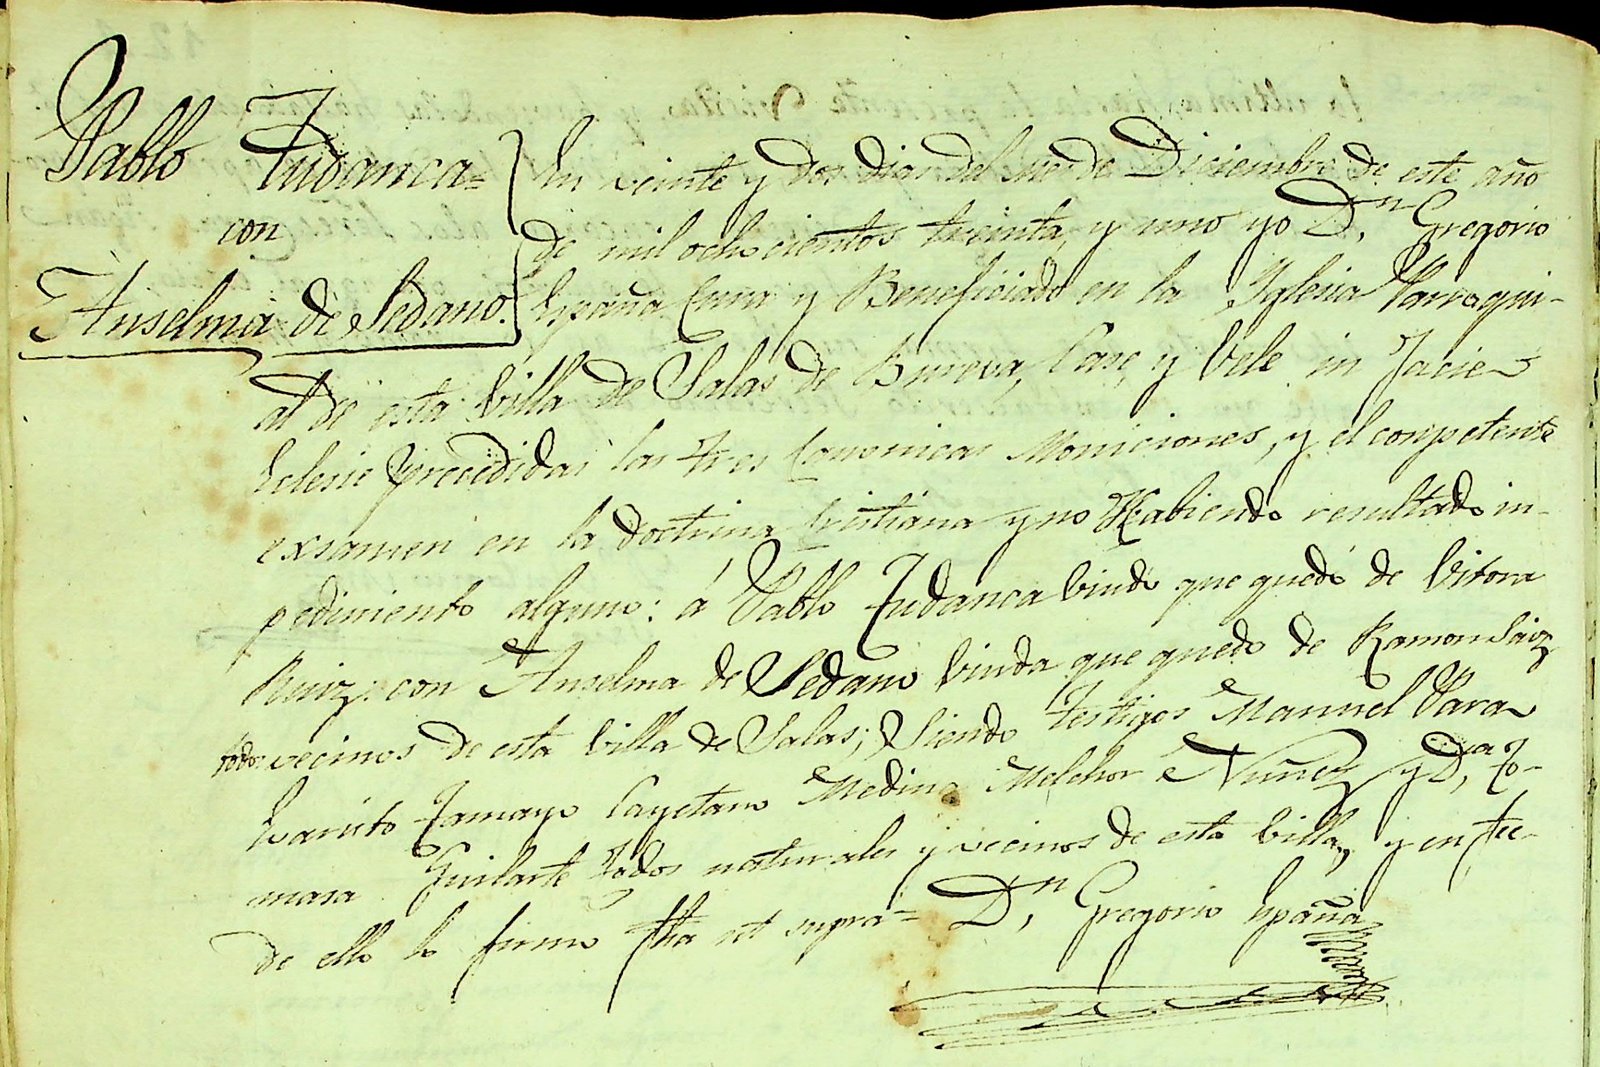 Pablo Tudanca=
con
Anselma de Sedano.
En veinte y dos dias del mes de Diciembre de este año
de mil ochocientos treinta, y uno yo Dn. Gregorio
España Cura y Beneficiado en la Iglesia Parroqui-
al de esta Villa de Salas de Bureva, Case, y Vele in Facie
Eclesie precedidas las tres Canonicas Moniciones, y el conpetente
examen en la doctrina Cristiana y no Habiendo resultado in-
pedimento alguno: á Pablo Tudanca viudo que quedó de Vitora
Ruiz: con Anselma de Sedano viuda que quedo de Ramon Saiz
todos vecinos de esta Villa de Salas; Siendo testigos Manuel Para
Evaristo Tamayo Cayetano Medina Melchor Nuñez y Da. To-
masa Guilarte todos naturales y vecinos de esta Villa, y en fee
de ello lo firmo fha ut supra= Dn. Gregorio España